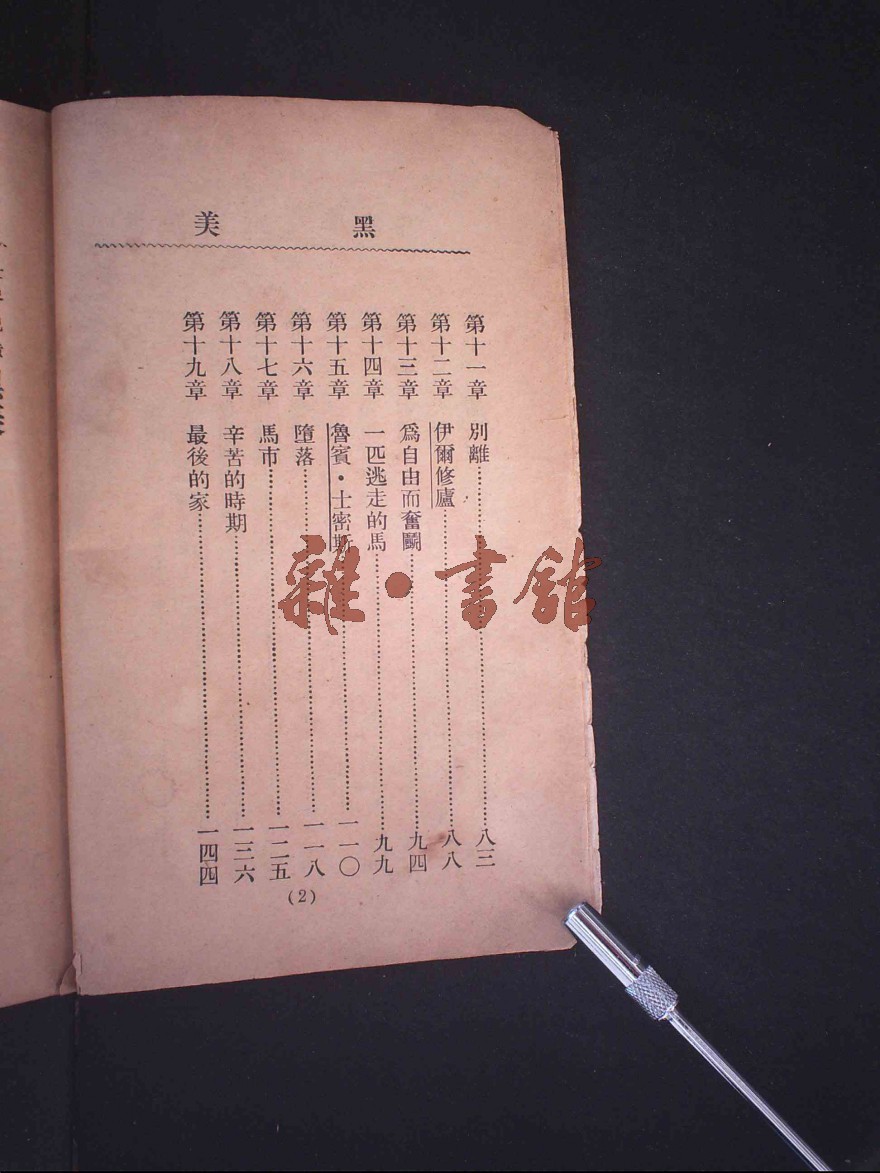 黑美
第十一章 別離……八三
第十二章 伊爾修廬……八八
第十三章 爲自由而奮鬭……九四
第十四章 一匹逃走的馬……九九
第十五章 魯賓・士密斯……一一〇
第十六章 墮落……一一八
第十七章 馬市……一二五
第十八章 辛苦的時期……一三六
第十九章 最後的家……一四四
(2)
雜・書館